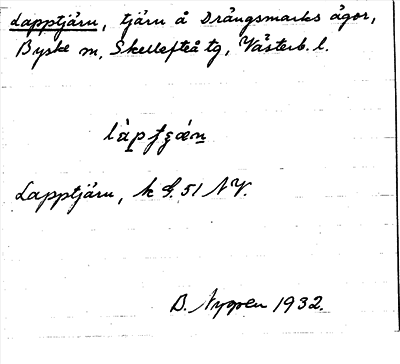 Lapptjärn, tjärn å Drängsmarks ägor,
Byske sn, Skellefteå tg, Västerb. l.
Lapptjärn, k G. 51 NV.
B. Nygren 1932.